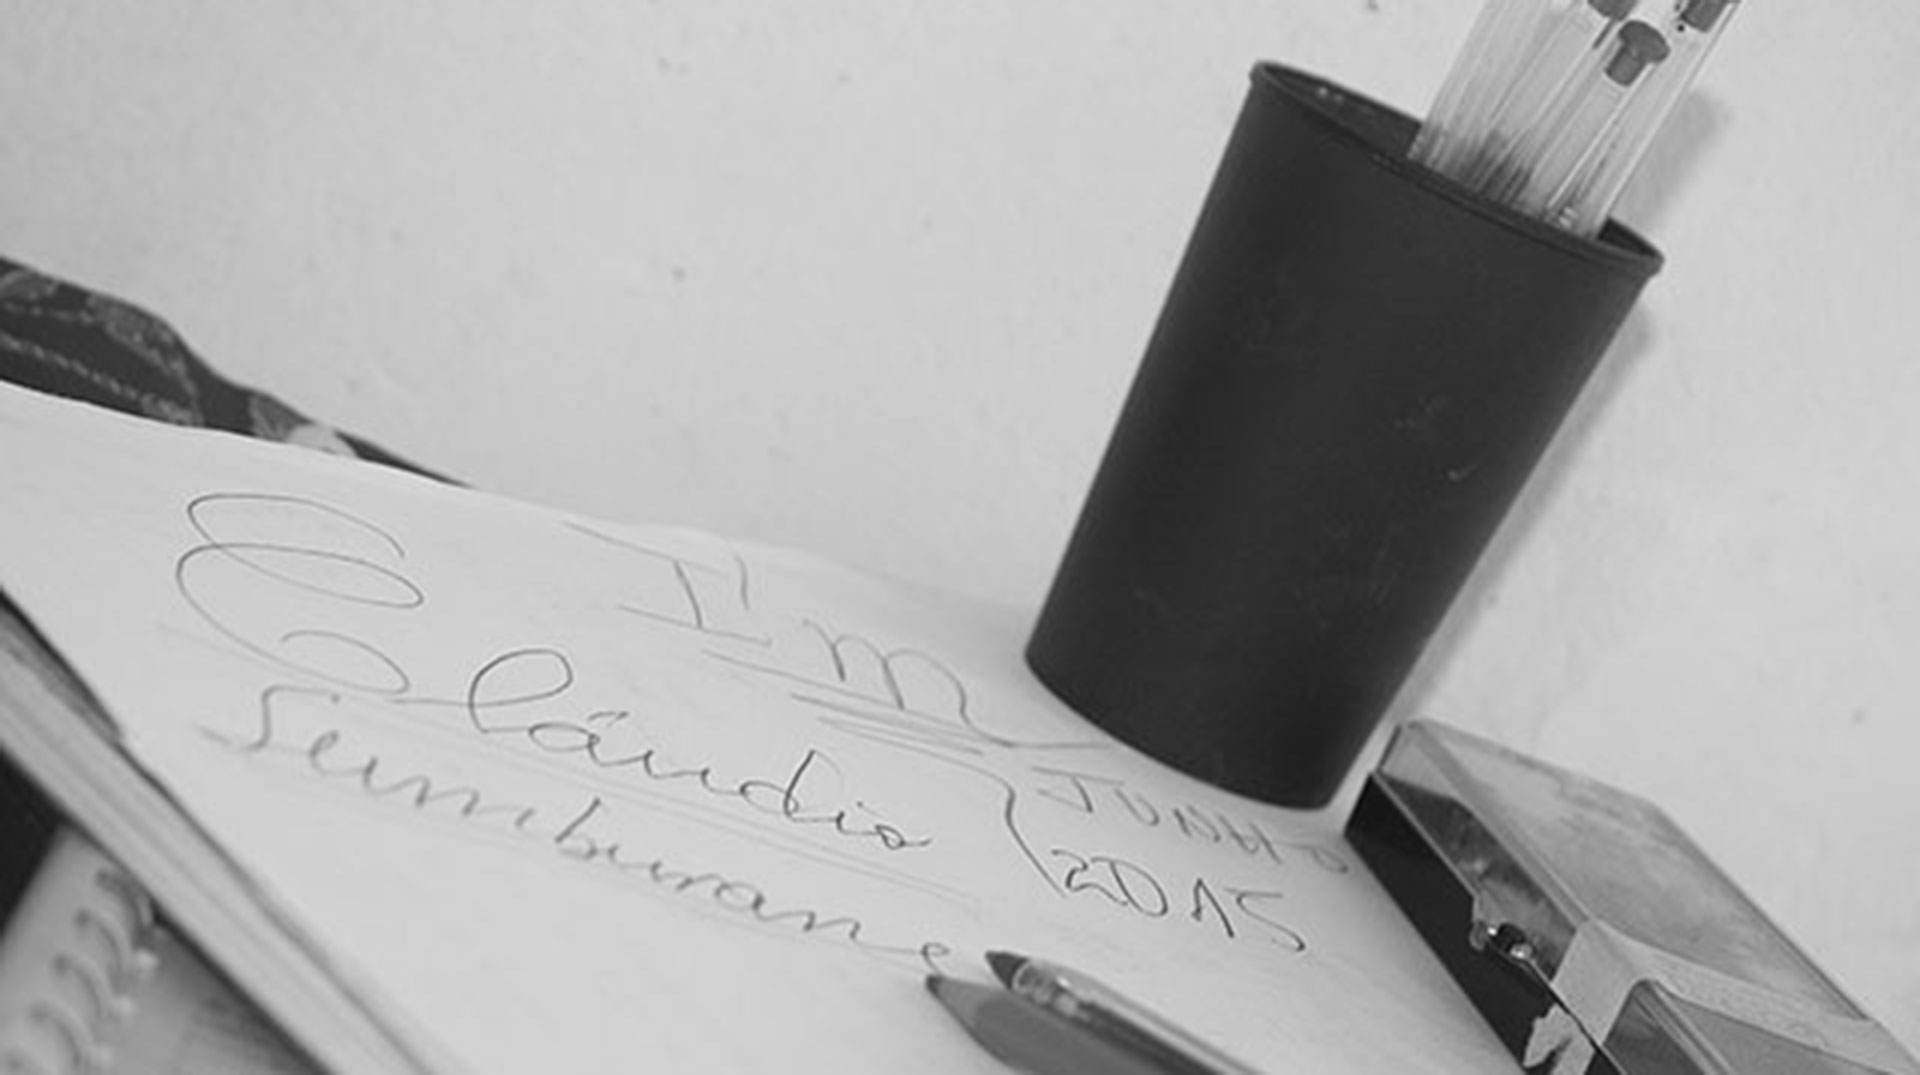 I'm
Cláudio
Semburane
JUNHO
2015